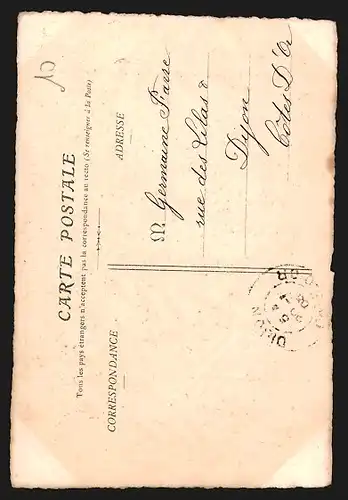 CARTE POSTALE
Tous les pays étrangers n'acceptent pas la correspondance au recto (Se renseigner à la Poste)
CORRESPONDANCE
ADRESSE
M Germaine Parse
rue des Lilas 8
Dijon
Côtes D'Or
10